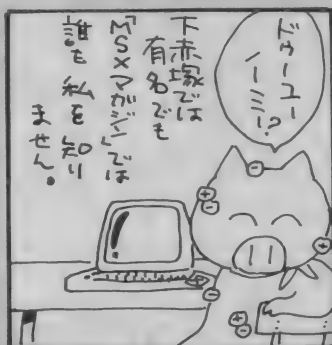 ドゥーユー
ノーミー!?
下赤塚では
有名でも
「MSXマガジン」では
誰も私を知り
ません。